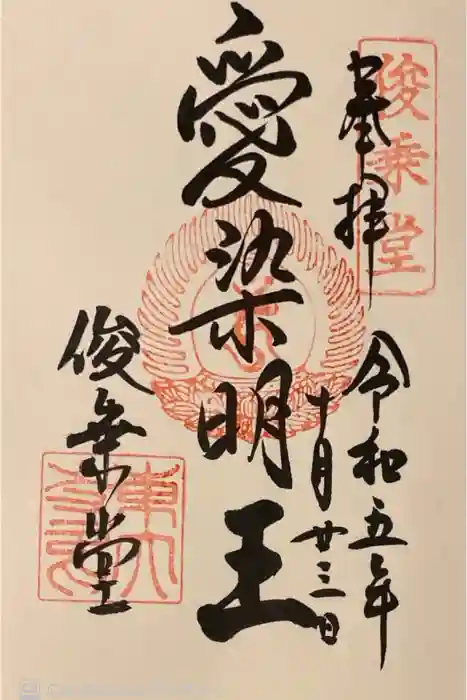 俊乗堂
奉拝
令和五年
十月廿三日
愛染明王
俊乗堂